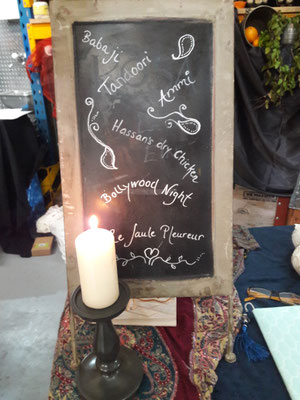 Babaji
Tandoori
Ammi
Hassan's dry Chicken
Bollywood Night
Le Saule Pleureur